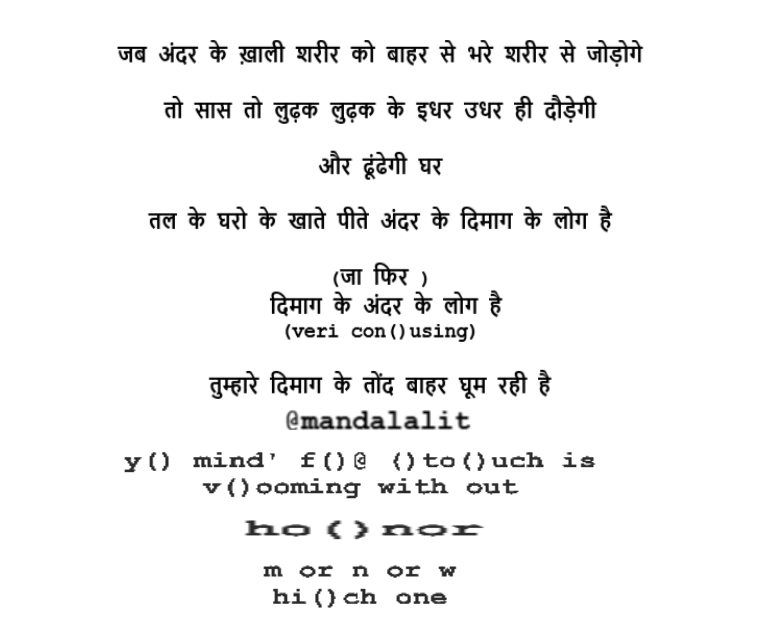 जब अंदर के ख़ाली शरीर को बाहर से भरे शरीर से जोड़ोगे
तो सास तो लुढ़क लुढ़क के इधर उधर ही दौड़ेगी
और ढूंढेगी घर
तल के घरो के खाते पीते अंदर के दिमाग के लोग है
(जा फिर )
दिमाग के अंदर के लोग है
(veri con()using)
तुम्हारे दिमाग के तोंद बाहर घूम रही है
@mandalalit
y() mind' f()@ ()to()uch is
v()ooming with out
ho()nor
m or n or w
hi()ch one